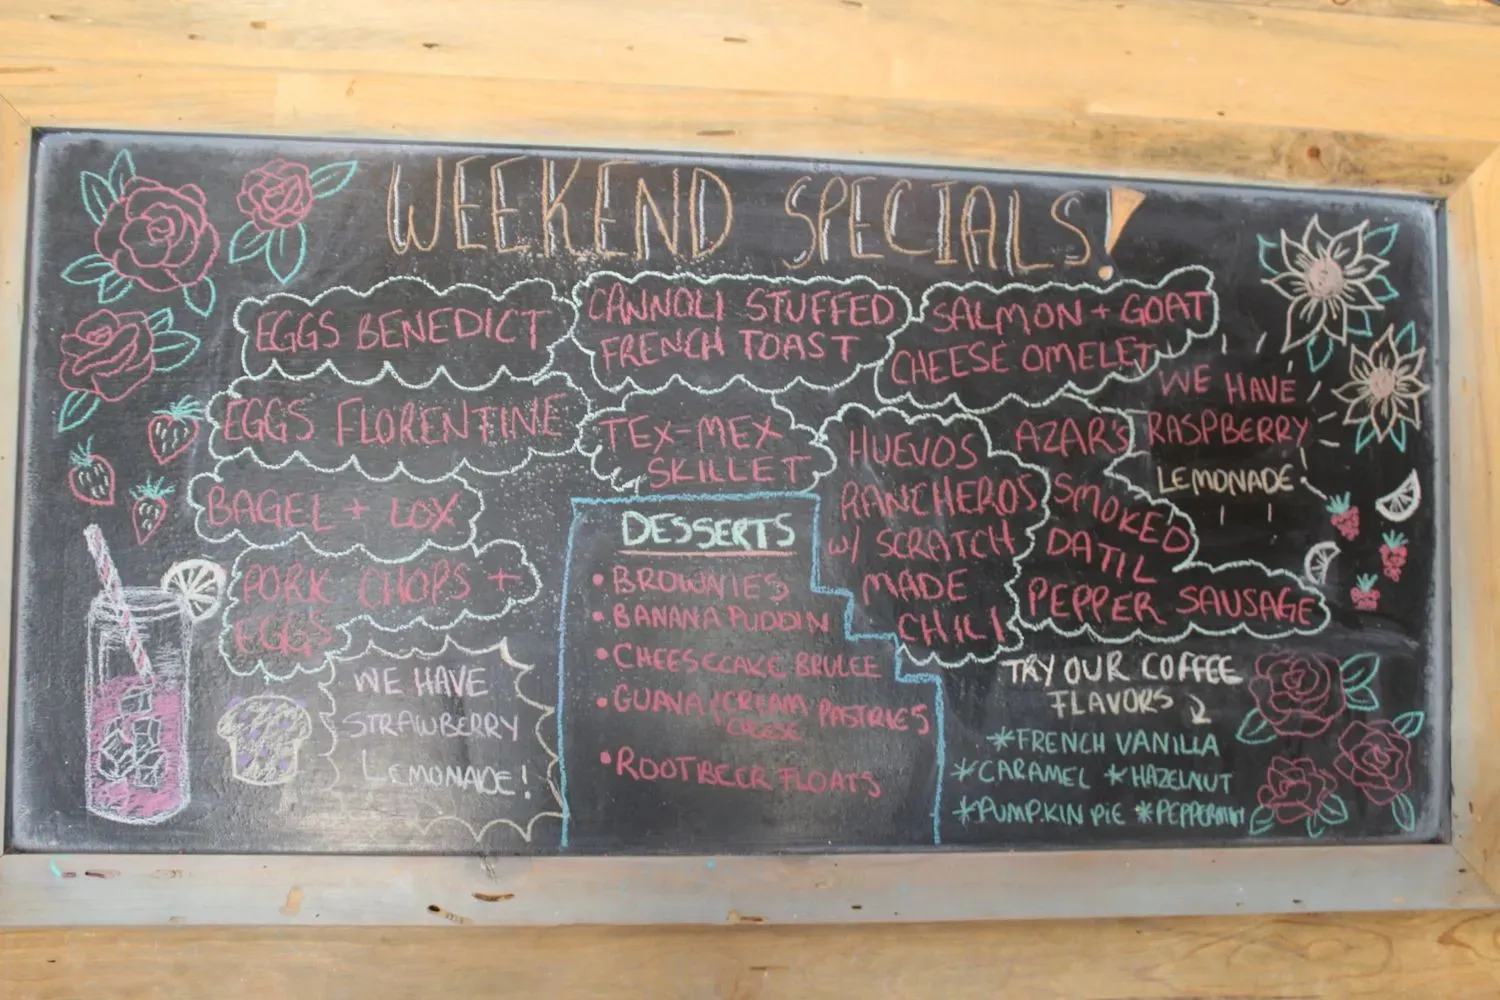 WEEKEND SPECIALS!
EGGS BENEDICT
CANNOLI STUFFED
FRENCH TOAST
SALMON + GOAT
CHEESE OMELET
EGGS FLORENTINE
TEX-MEX
SKILLET
HUEVOS
RANCHEROS
W/ SCRATCH
MADE
CHILI
AZAR'S
SMOKED
DATIL
PEPPER SAUSAGE
WE HAVE
RASPBERRY
LEMONADE!
BAGEL + LOX
PORK CHOPS +
EGGS
WE HAVE
STRAWBERRY
LEMONADE!
DESSERTS
• BROWNIES
• BANANA PUDDIN
• CHEESECAKE BRULEE
• GUAVA/CREAM PASTRIES
CHEESE
• ROOTBEER FLOATS
TRY OUR COFFEE
FLAVORS
*FRENCH VANILLA
*CARAMEL *HAZELNUT
*PUMPKIN PIE *PEPPERMINT